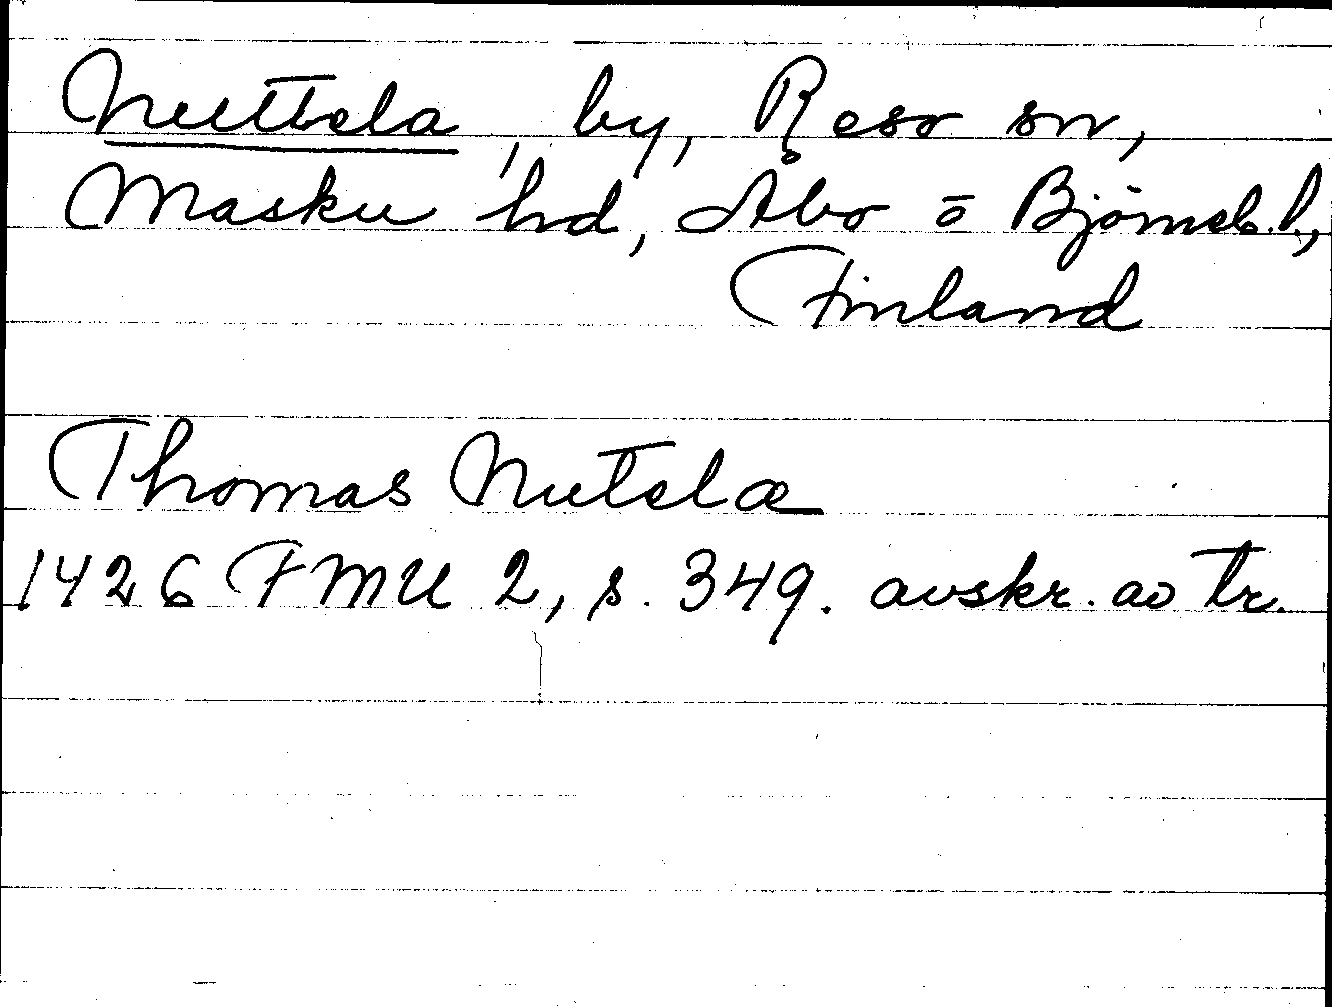 Nuttela, by, Reso sn,
Masku hd, Åbo o Björneb. l.,
Finland
Thomas Nutela
1426 FMU 2, s. 349. avskr. av tr.